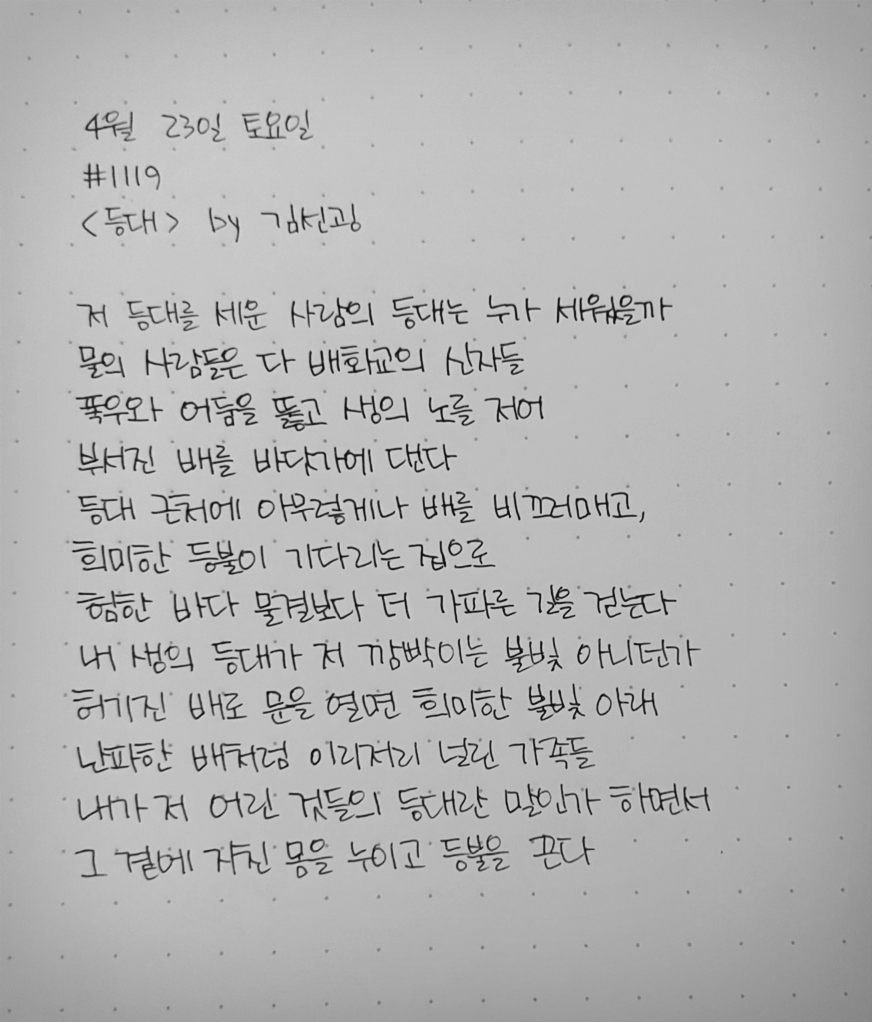 4월 23일 토요일
#1119
<등대> by 김선굉
저 등대를 세운 사람의 등대는 누가 세웠을까
물의 사람들은 다 배화교의 신자들
폭우와 어둠을 뚫고 생의 노를 저어
부서진 배를 바닷가에 댄다
등대 근처에 아무렇게나 배를 비끄러매고,
희미한 등불이 기다리는 집으로
험한 바다 물결보다 더 가파른 길을 걷는다
내 생의 등대가 저 깜빡이는 불빛 아니던가
허기진 배로 문을 열면 희미한 불빛 아래
난파한 배처럼 이리저리 널린 가족들
내가 저 어린 것들의 등대란 말인가 하면서
그 곁에 지친 몸을 누이고 등불을 끈다